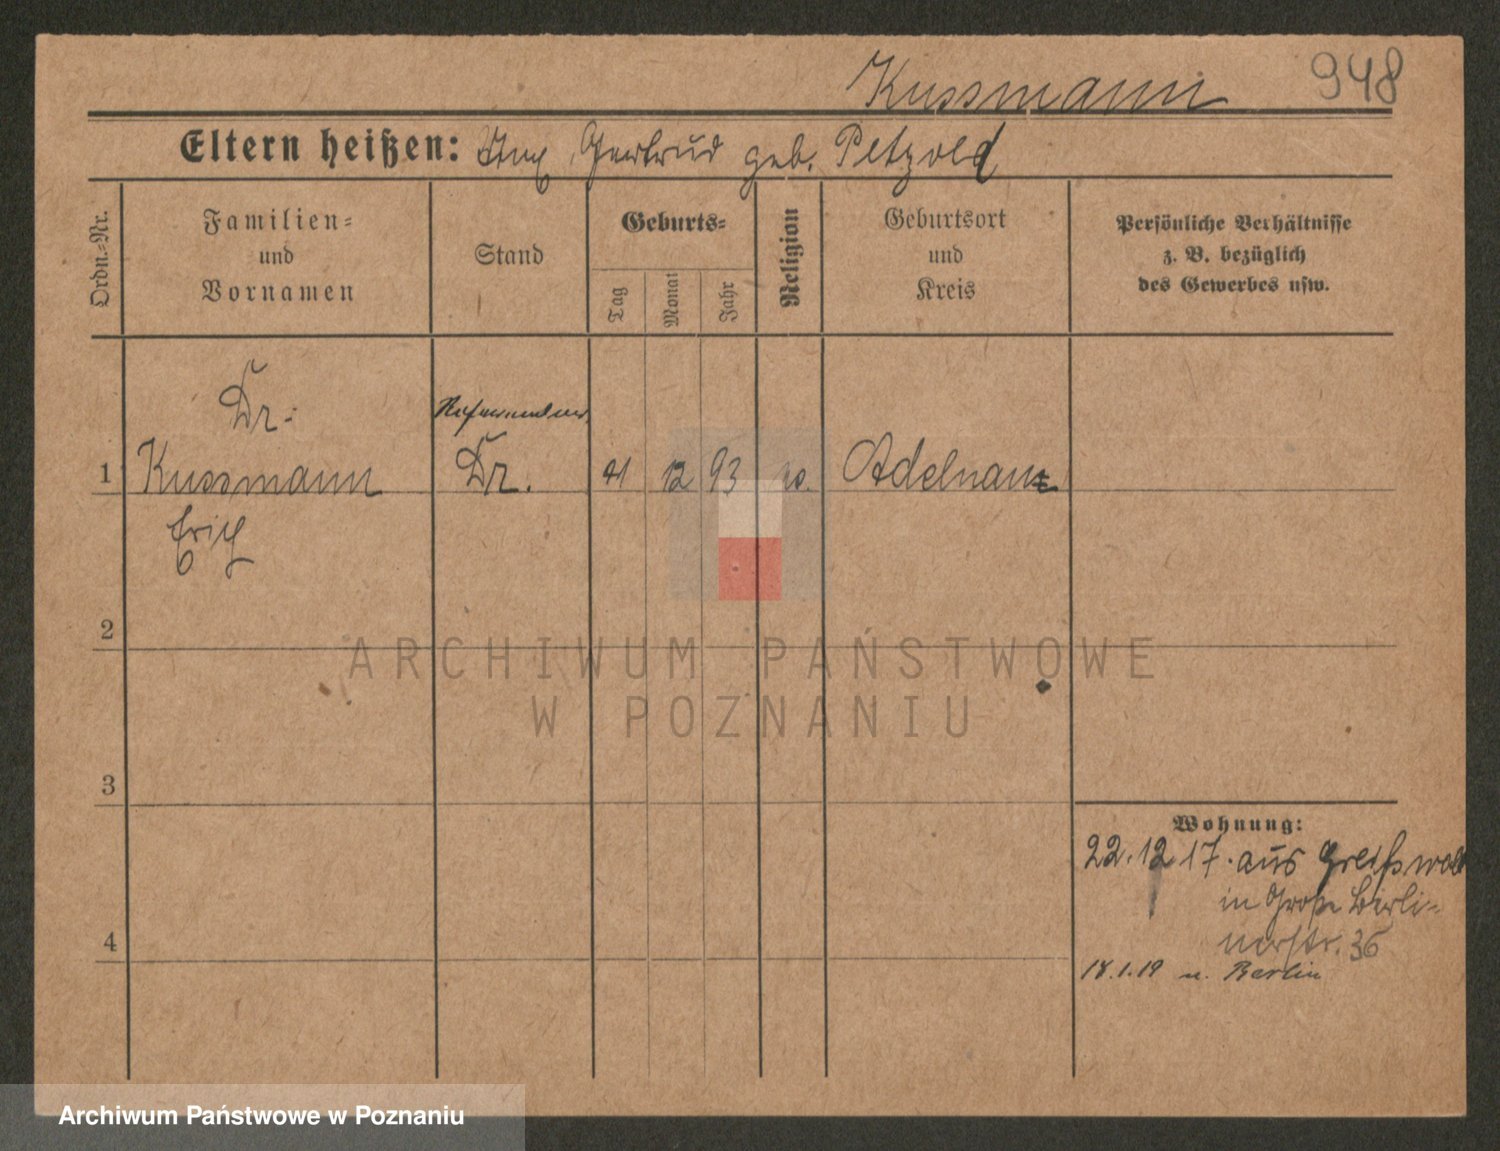 Kussmann 948
Eltern heißen: Gertrud geb. Petzold
Ordn.=Nr.
Familien=
und
Vornamen
Stand
Geburts=
Tag
Monat
Jahr
Religion
Geburtsort
und
Kreis
Persönliche Verhältnisse
z. B. bezüglich
des Gewerbes usw.
Dr.
Referendar
1 Kussmann Dr. 12 93 Adelnau
Erich
2
ARCHIWUM PAŃSTWOWE
W POZNANIU
3
Wohnung:
22.12 17. aus Greifswald
in Große Berli-
4 nerstr. 36
18.1.19 n. Berlin
Archiwum Państwowe w Poznaniu